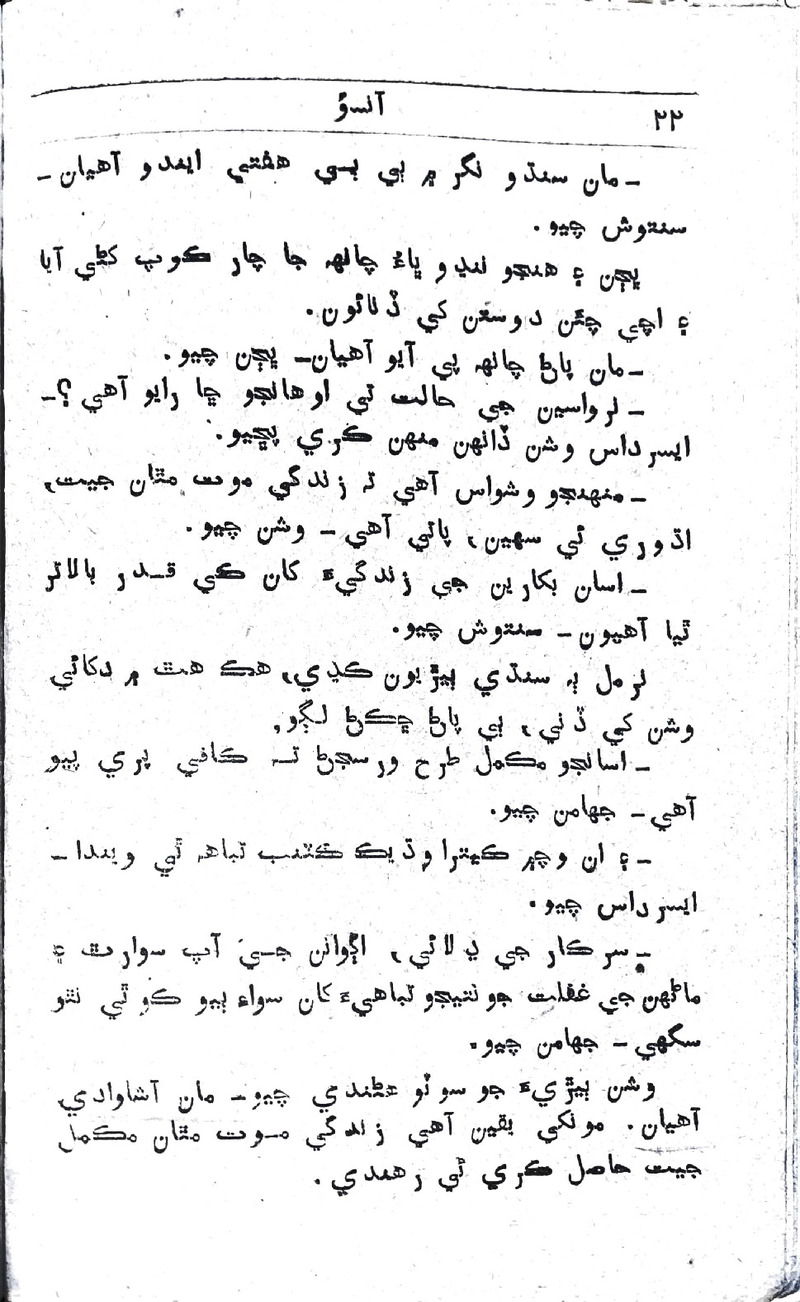 ۲۲
آنسوُ
ـ مان سنڌو نگر ۾ ئي ٻي هفتي ايندو آهيان ـ
سنتوش چيو.
ڀڄن ۽ هنجو ننڍو ڀاءُ چانهه جا چار ڪوپ کڻي آيا
۽ اچي چئن دوستن کي ڏنائون.
ـ مان پاڻ چانهه پي آيو آهيان ـ ڀڄن چيو.
ـ نرواسين جي حالت تي اوهانجو ڇا رايو آهي؟ ـ
ايسرداس وشن ڏانهن منهن ڪري پڇيو.
ـ منهنجو وشواس آهي ته زندگي موت مٿان جيت،
اڌوري ئي سهين، پاتي آهي ـ وشن چيو.
ـ اسان بکارين جي زندگيءَ کان ڪي قدر بالاتر
ٿيا آهيون ـ سنتوش چيو.
نرمل ٻه سنڌي ٻيڙيون ڪڍي، هڪ هٿ ۾ دکائي
وشن کي ڏني، ٻي پاڻ ڇڪڻ لڳو.
ـ اسانجو مڪمل طرح ورسجڻ ته ڪافي پري پيو
آهي ـ جهامن چيو.
ـ ۽ ان وچ۾ ڪيترا وڌيڪ ڪٽنب تباهه ٿي ويندا ـ
ايسرداس چيو.
ـ سرڪار جي ڍلائي، اڳواڻن جي آپ سوارٿ ۽
ماڻهن جي غفلت جو نتيجو تباهيءَ کان سواءِ ٻيو ڪو ٿي نٿو
سگهي ـ جهامن چيو.
وشن ٻيڙيءَ جو سوٽو هڻندي چيو ـ مان آشاوادي
آهيان. مونکي يقين آهي زندگي موت مٿان مڪمل
جيت حاصل ڪري ئي رهندي.